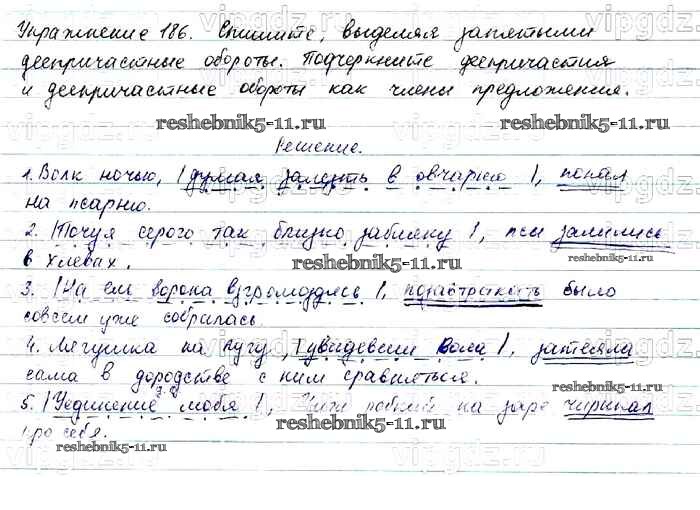 Упражнение 186. Спишите, выделяя запятыми
деепричастные обороты. Подчеркните деепричастия
и деепричастные обороты как члены предложения.
reshebnik5-11.ru
Решение.
1. Волк ночью, | думая залезть в овчарню |, попал
на псарню.
2. | Почуя серого так близко забияку |, псы залились
в хлевах.
reshebnik5-11.ru
3. | На ель ворона взгромоздясь |, позавтракать было
совсем уже собралась.
4. Лягушка на лугу, | увидевши вола |, затеяла
сама в дородстве с ним сравняться.
reshebnik5-11.ru
5. | Уединение любя |, Чиж робкий на заре чирикал
про себя.
reshebnik5-11.ru
vipgdz.ru